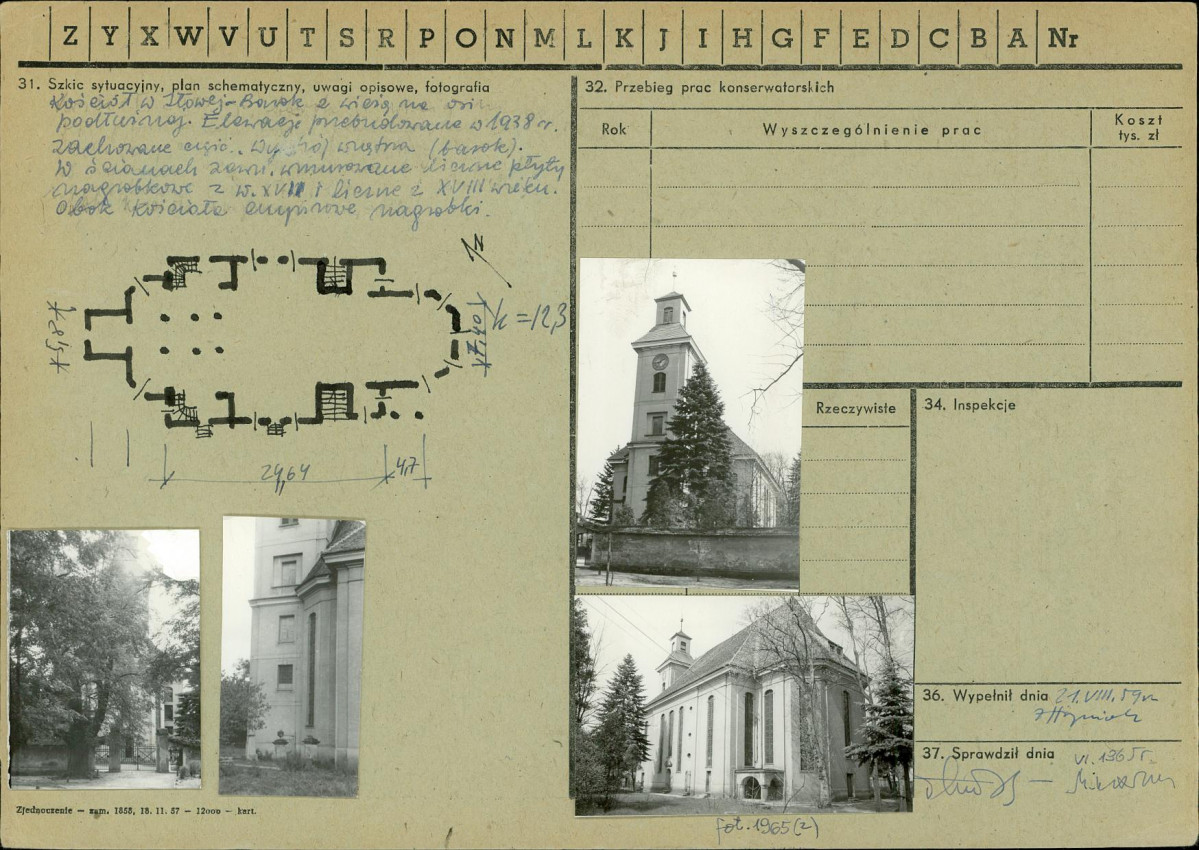 Z Y X W V U T S R P O N M L K J I H G F E D C B A Nr
31. Szkic sytuacyjny, plan schematyczny, uwagi opisowe, fotografia
Kościół w Iłowej - Barok z wieżą na osi
podłużnej. Elewacje przebudowane w 1938 r.
zachowane częśc. wystrój wnętrza (barok).
W ścianach zewn. wmurowane liczne płyty
nagrobkowe z w. XVII i liczne z XVIII wieku.
Obok kościoła empirowe nagrobki.
N
h = 12,3
24,64
4,7
Zjednoczenie — zam. 1858, 18. 11. 57 — 12000 — kart.
32. Przebieg prac konserwatorskich
Rok
Wyszczególnienie prac
Koszt
tys. zł
Rzeczywiste
34. Inspekcje
36. Wypełnił dnia 21.VIII.59 r.
37. Sprawdził dnia
VI. 1965 r.
fot. 1965 (2)